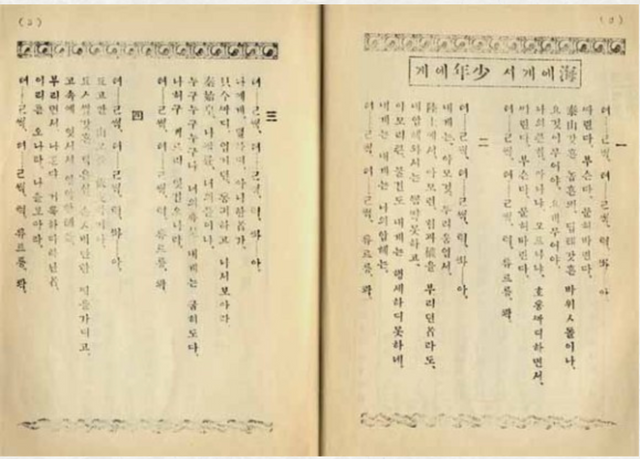 (1)
海에게서 少年에게
一
텨―ㄹ썩, 텨―ㄹ썩, 텩, 쏴―아.
따린다, 부슨다, 문허바린다,
泰山갓흔 놉흔뫼, 딥턔갓흔 바위ㅅ돌이나,
요것이무어야, 요게무어야,
나의큰힘, 아나냐, 모르나냐, 호통까디하면서,
따린다, 부슨다, 문허바린다,
텨―ㄹ썩, 텨―ㄹ썩, 텩, 튜르릉, 콱.
二
텨―ㄹ썩, 텨―ㄹ썩, 텩, 쏴―아.
내게는, 아모것, 두려움업서,
陸上에서, 아모런, 힘과權을 부리던者라도,
내압헤와서는 꼼땩못하고,
아모리큰, 물건도 내게는 행세하디못하네.
내게는 내게는 나의압헤는
텨―ㄹ썩, 텨―ㄹ썩, 텩, 튜르릉, 콱.
(2)
三
텨―ㄹ썩, 텨―ㄹ썩, 텩, 쏴―아.
나에게, 뎔하디, 아니한者가,
只今까디, 업거던, 통긔하고 나서보아라.
秦始皇, 나팔륜, 너의들이냐,
누구누구누구냐 너의亦是 내게는 굽히도다,
나허구 겨르리 잇건오나라.
텨―ㄹ썩, 텨―ㄹ썩, 텩, 튜르릉, 콱.
四
텨―ㄹ썩, 텨―ㄹ썩, 텩, 쏴―아.
됴고만 山모를 依支하거나,
됴ㅅ쌀갓흔 뎍은섬, 손ㅅ벽만한 땅을가디고,
고속에 잇서서 영악한톄를,
부리면서, 나혼댜 거룩하다하난者,
이리됴, 오나라, 나를보아라.
텨―ㄹ썩, 텨―ㄹ썩, 텩, 튜르릉, 콱.